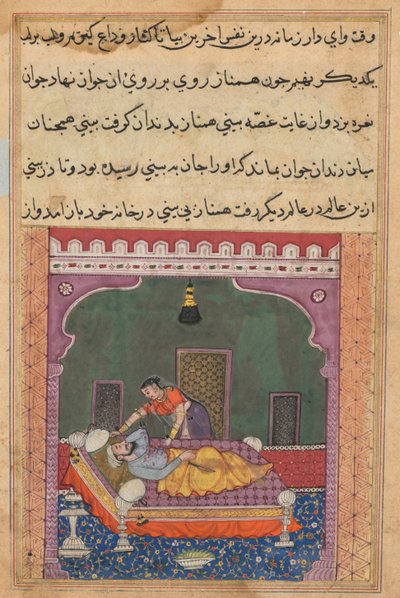 وقت واي دار زمانه درين نفس اخرين بيا تا كنار و وداع كنيم و لب بر لب
يكديكر نهيم جون همناز روي بر روي ان جوان نهاد جوان
نعره بزد و از غايت غصه بيني همناز بدندان گرفت بيني همچنان
ميان دندان جوان بماند كه او را جان به بيني رسيده بود و تا دربيني
ازين عالم در عالم ديكر رفت همناز بي بيني در خانه خود باز امد و از